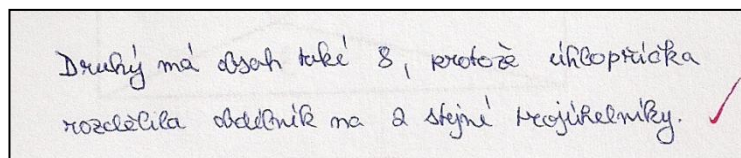 Druhý má obsah také 8, protože úhlopříčka
rozdělila obdélník na 2 stejné trojúhelníky.